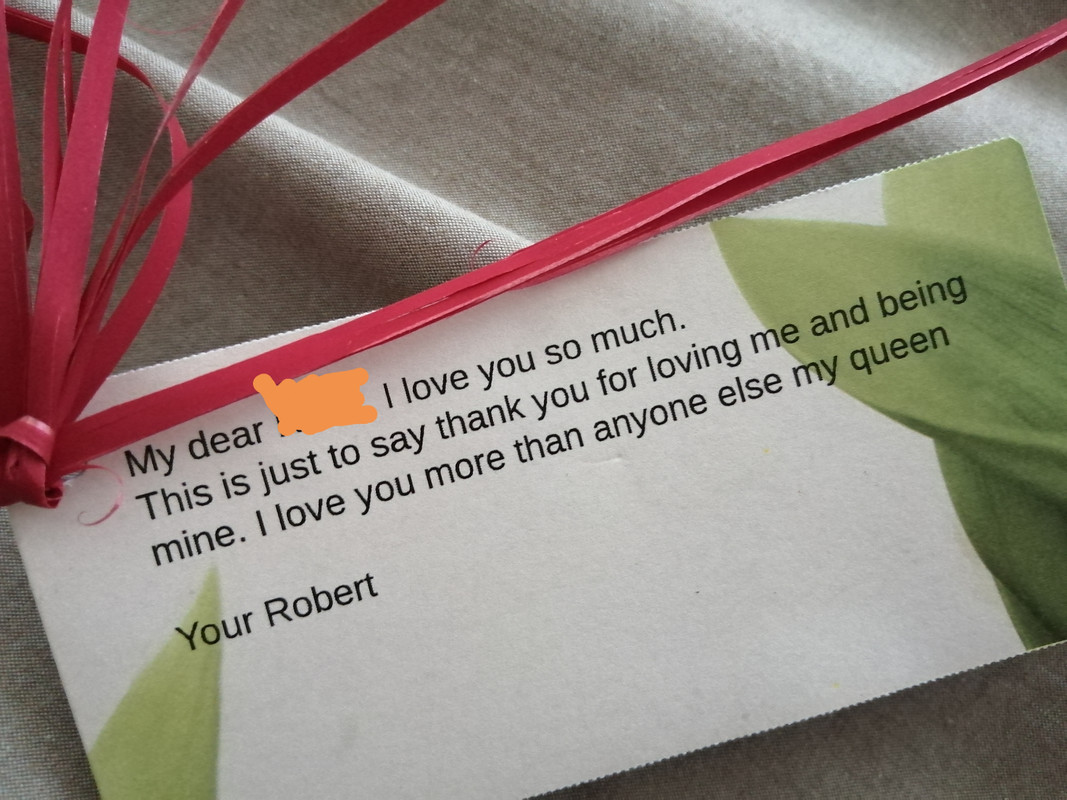 My dear I love you so much.
This is just to say thank you for loving me and being
mine. I love you more than anyone else my queen
Your Robert